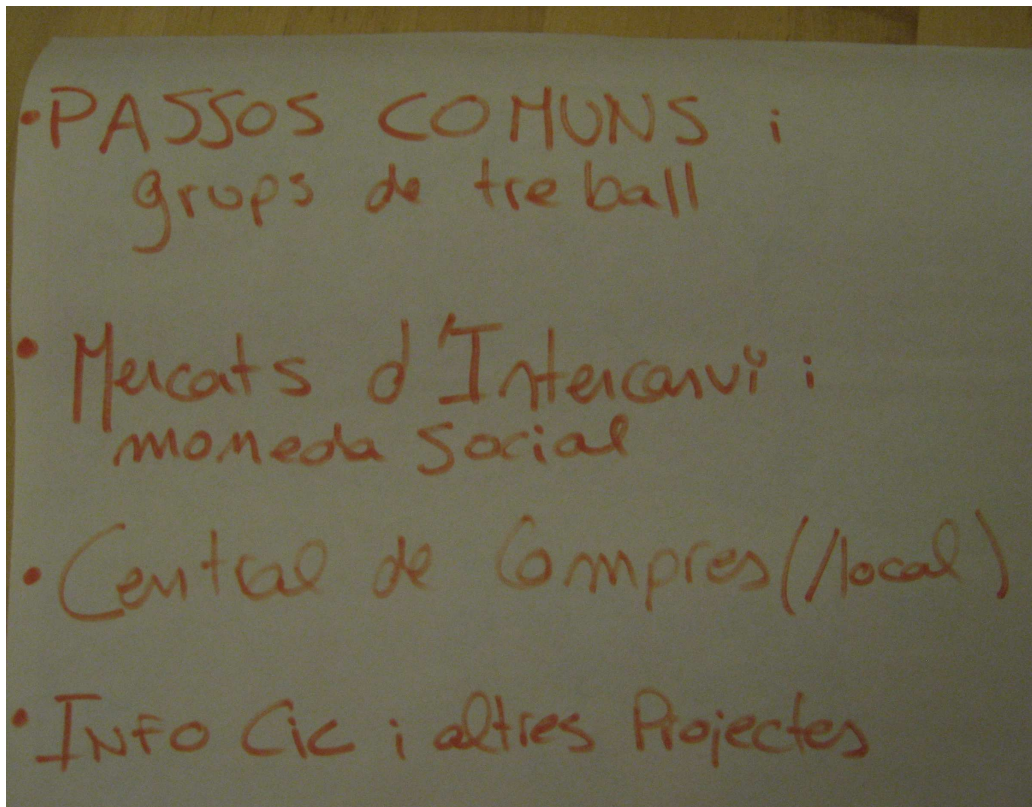 ·PASSOS COMUNS i
grups de treball
· Mercats d'Intercanvi i
moneda social
· Central de Compres (/local)
· INFO Cic i altres Projectes